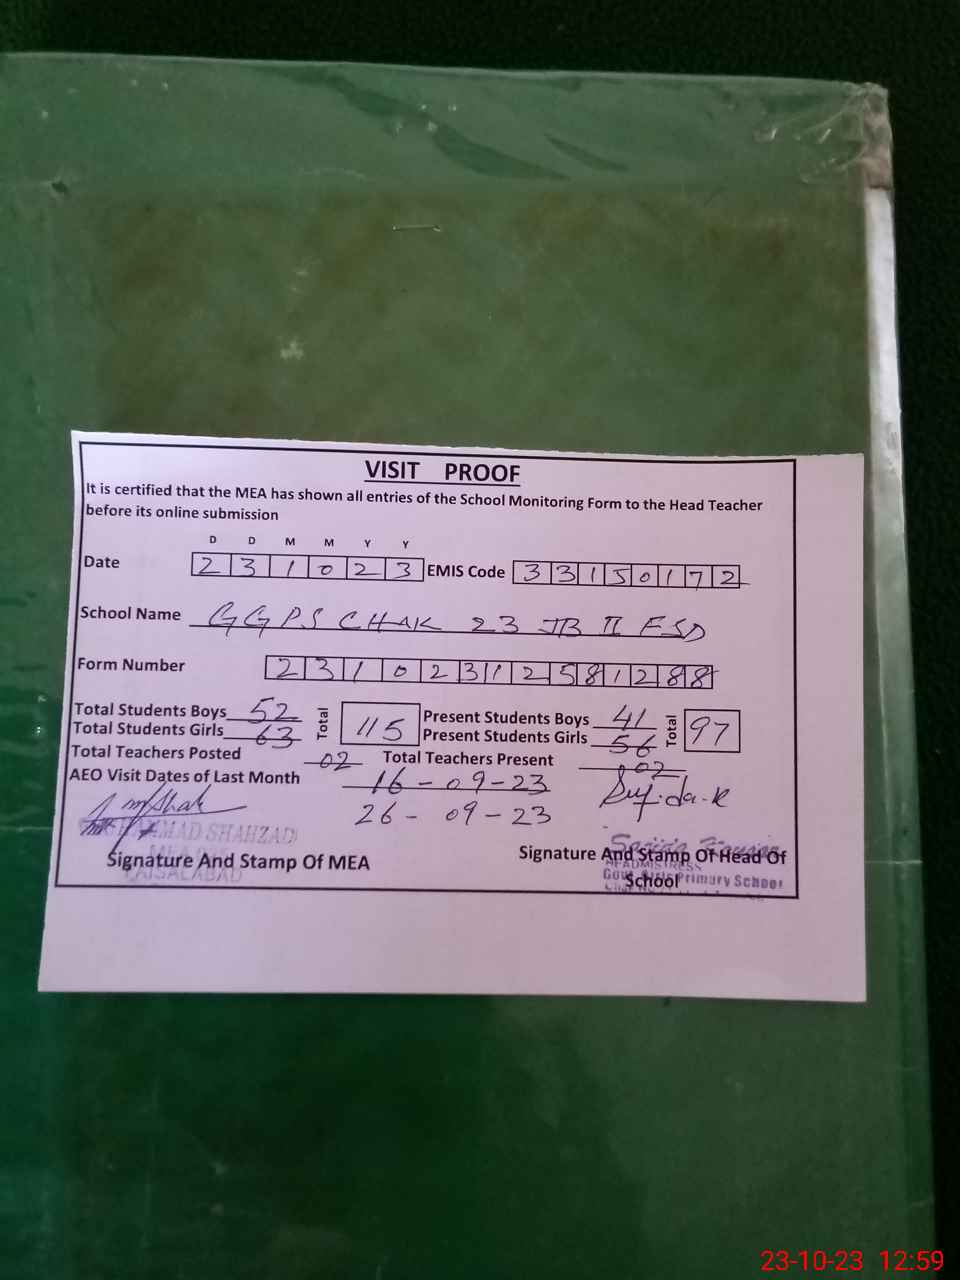 VISIT PROOF
It is certified that the MEA has shown all entries of the School Monitoring Form to the Head Teacher
before its online submission
D D M M Y Y
Date 2 3 1 0 2 3 EMIS Code 3 3 1 5 0 1 7 2
School Name GGPS CHAK 23 JB II FSD
Form Number 2 3 1 0 2 3 1 2 5 8 1 2 8 8
Total Students Boys 52 Total 115 Present Students Boys 41 Total 97
Total Students Girls 63 Present Students Girls 56
Total Teachers Posted 02 Total Teachers Present 02
AEO Visit Dates of Last Month 16-09-23
26-09-23
SHAHZAD
Signature And Stamp Of MEA
FAISALABAD
Signature And Stamp Of Head Of
School
HEADMISTRESS
Govt. Girls Primary School
23-10-23 12:59